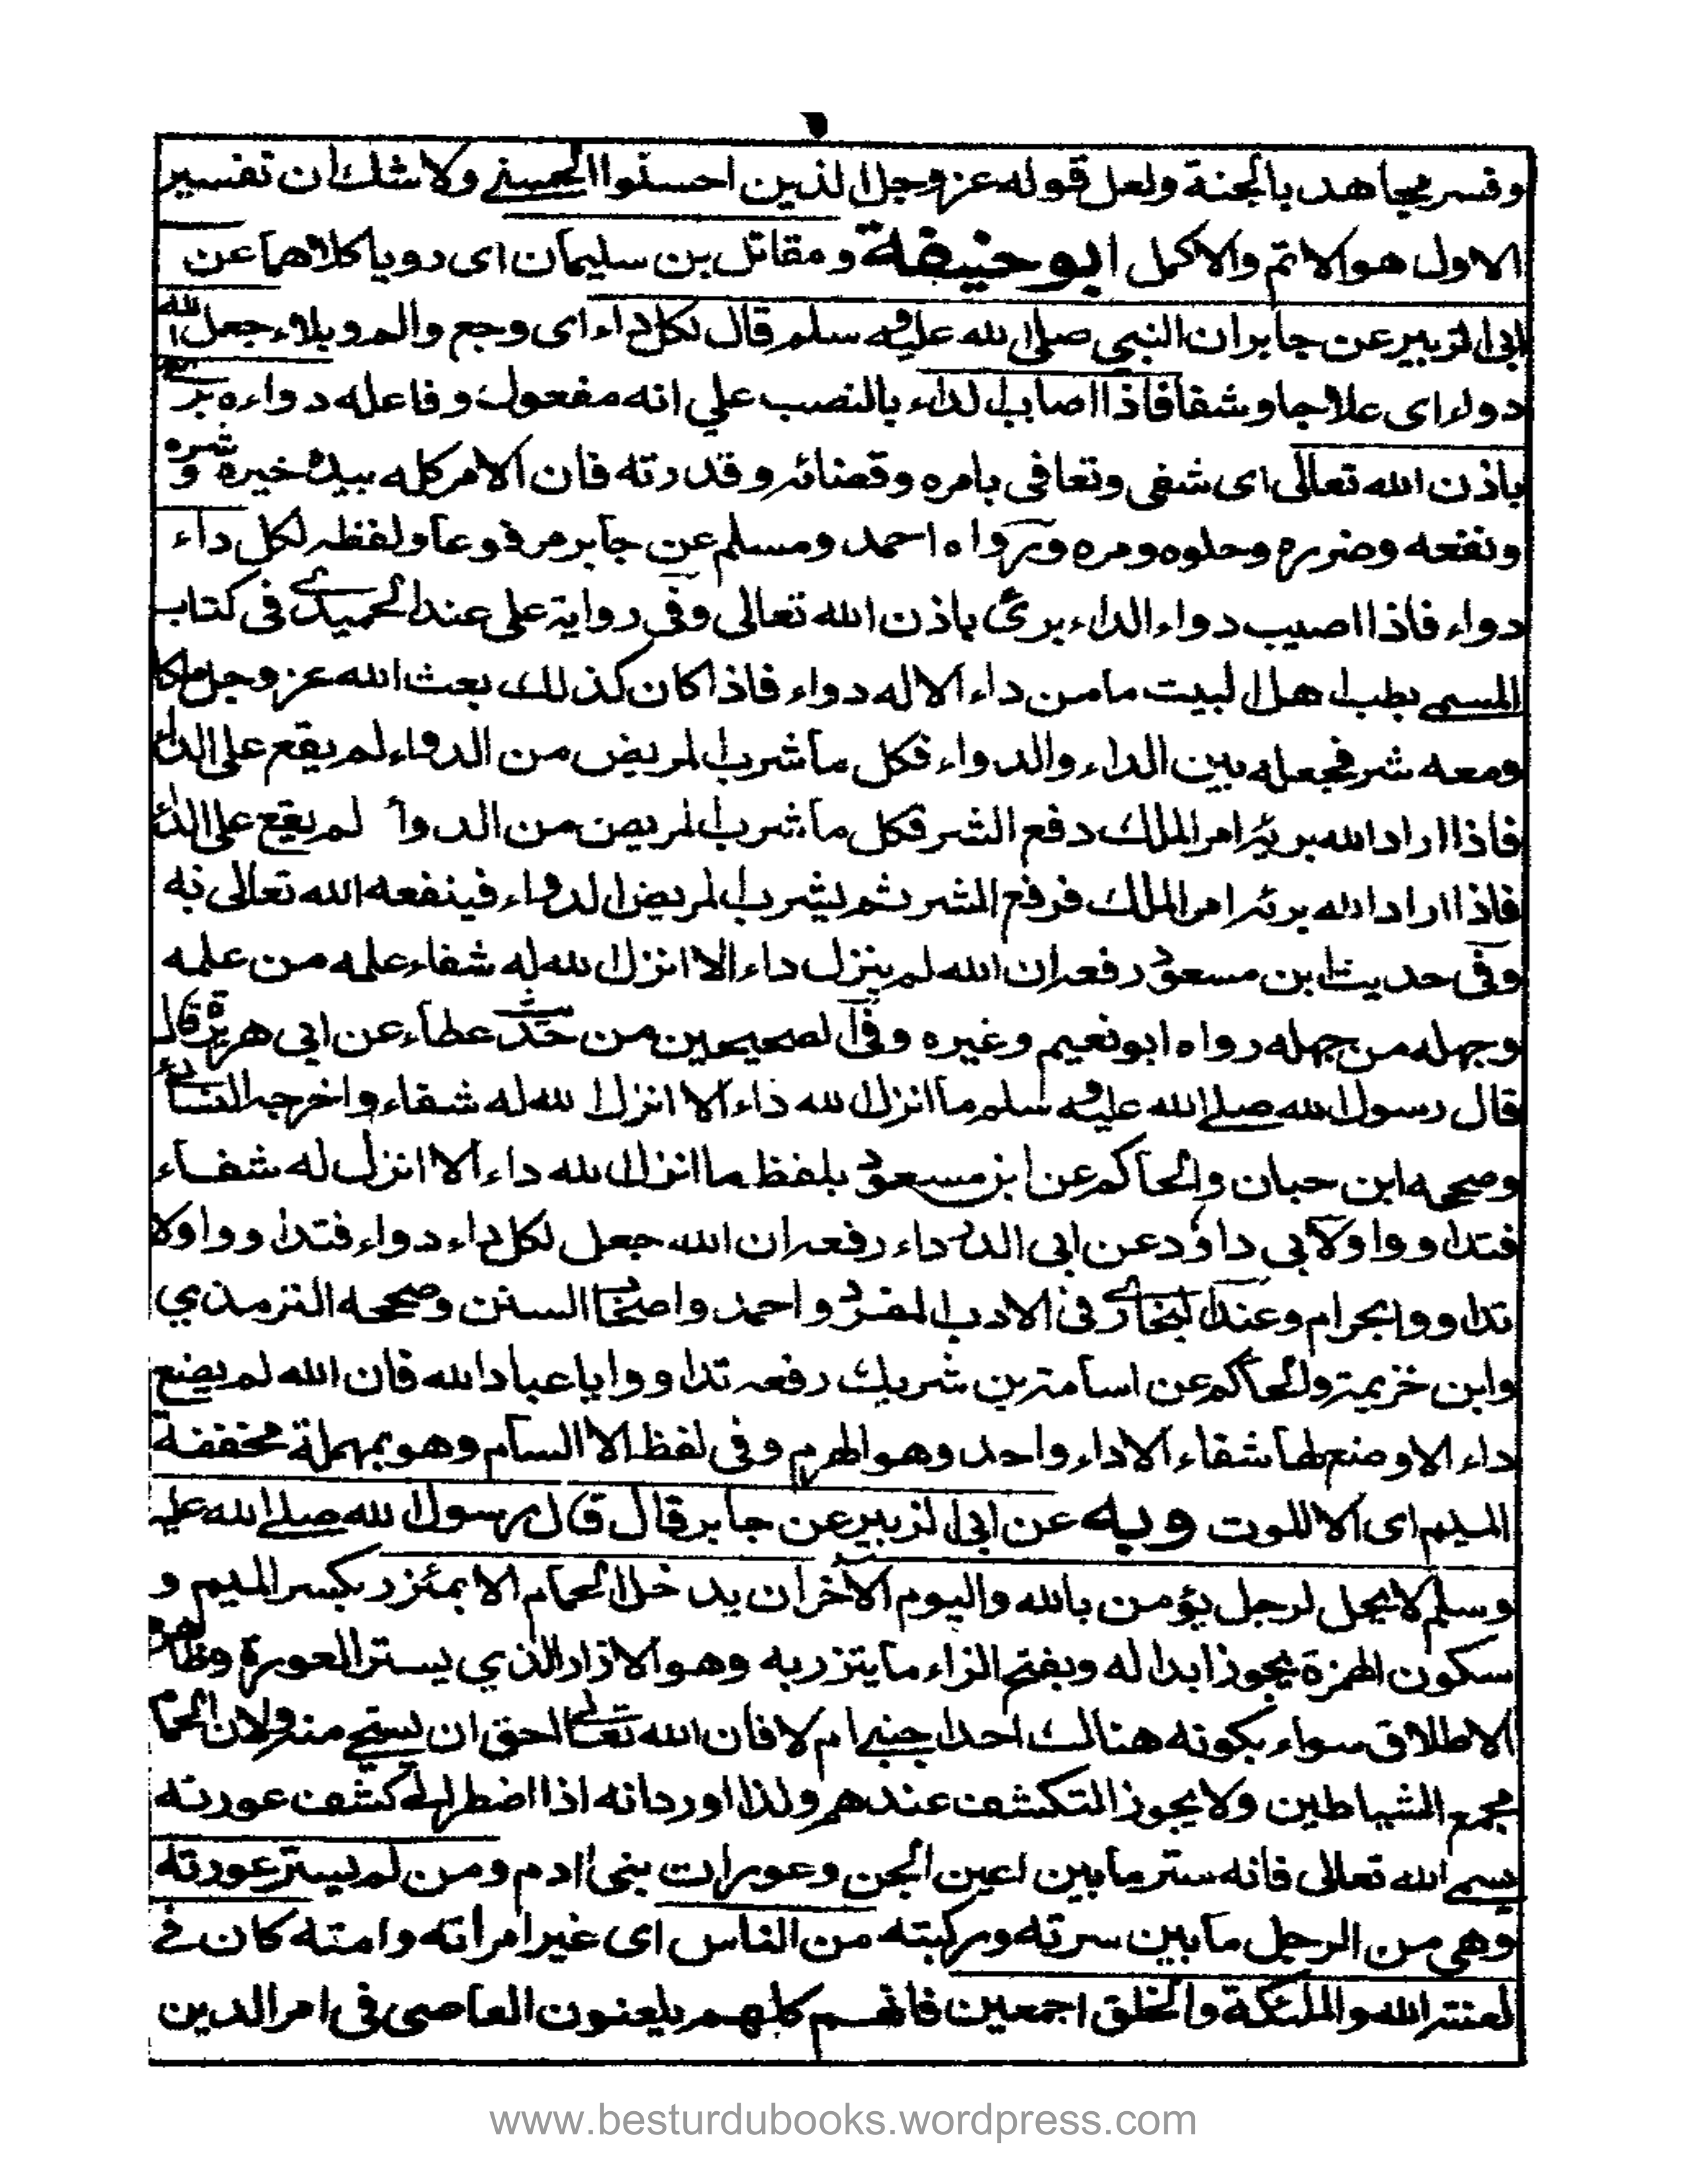 ٦
وفسر مجاهد بالجنة ولعل قوله عز وجل الذين احسنوا الحسنے ولا شك ان تفسير
الاول هو الاتم والاكمل ابو حنيفة ومقاتل بن سليمان ای رويا كلاهما عن
ابی الزبير عن جابر ان النبی صلی الله علیه وسلم قال لكل داء ای وجع والم وبلاء جعل الله
دواء ای علاجا وشفا فاذا اصاب الداء بالنصب علي انه مفعول وفاعله دواءه برئ
باذن الله تعالی ای شفی وتعافی بامره وقضائه وقدرته فان الامر كله بيده خيره وشره
ونفعه وضرره وحلوه ومره ورواه احمد ومسلم عن جابر مرفوعا ولفظه لكل داء
دواء فاذا اصيب دواء الداء برئ باذن الله تعالی وفی رواية علی عند الحميدی فی كتابه
المسمے بطب اهل البيت ما من داء الا له دواء فاذا كان كذلك بعث الله عز وجل ملكا
ومعه شر فجعله بين الداء والدواء فكل ما شرب المريض من الدواء لم يقع علی الداء
فاذا اراد الله بريئه امر الملك دفع الشر فكل ما شرب المريض من الدوأ لم يقع علی الداء
فاذا اراد الله برئه امر الملك فرفع الشر ثم يشرب المريض الدواء فينفعه الله تعالی به
وفی حديث ابن مسعود رفعه ان الله لم ينزل داء الا انزل الله له شفاء علمه من علمه
وجهله من جهله رواه ابو نعيم وغيره وفی الصحيحين من حديث عطاء عن ابی هريرة قال
قال رسول الله صلے الله عليه وسلم ما انزل الله داء الا انزل الله له شفاء واخرجه النسائی
وصححه ابن حبان والحاكم عن ابن مسعود بلفظ ما انزل الله داء الا انزل له شفاء
فتداووا ولابی داود عن ابی الدرداء رفعه ان الله جعل لكل داء دواء فتداووا ولا
تداووا بحرام وعند البخاری فی الادب المفرد واحمد واصحاب السنن وصححه الترمذي
وابن خزيمة والحاكم عن اسامة بن شريك رفعه تداووا يا عباد الله فان الله لم يضع
داء الا وضع لها شفاء الا داء واحد وهو الهرم وفی لفظ الا السام وهو بمهملة مخففة
الميم ای الا الموت وبه عن ابی الزبير عن جابر قال قال رسول الله صلے الله عليه
وسلم لا يحل لرجل يؤمن بالله واليوم الآخر ان يدخل الحمام الا بمئزر بكسر الميم و
سكون الهمزة يجوز ابداله وبفتح الزاء ما يتزر به وهو الازار الذي يستر العورة وظاهره
الاطلاق سواء بكونه هنالك احد اجنبے ام لا فان الله تعالی احق ان يستحے منه ولان الحمام
مجمع الشياطين ولا يجوز التكشف عندهم ولذا اورد انه اذا اضطر اله كشف عورته
يسمے الله تعالی فانه ستر ما بين اعين الجن وعورات بنی ادم ومن لم يستر عورته
وهی من الرجل ما بين سرته وركبته من الناس ای غير امراته وامته كان فے
لعنة الله والملئكة والخلق اجمعين فانهم كلهم يلعنون العاصی فی امر الدين
www.besturdubooks.wordpress.com